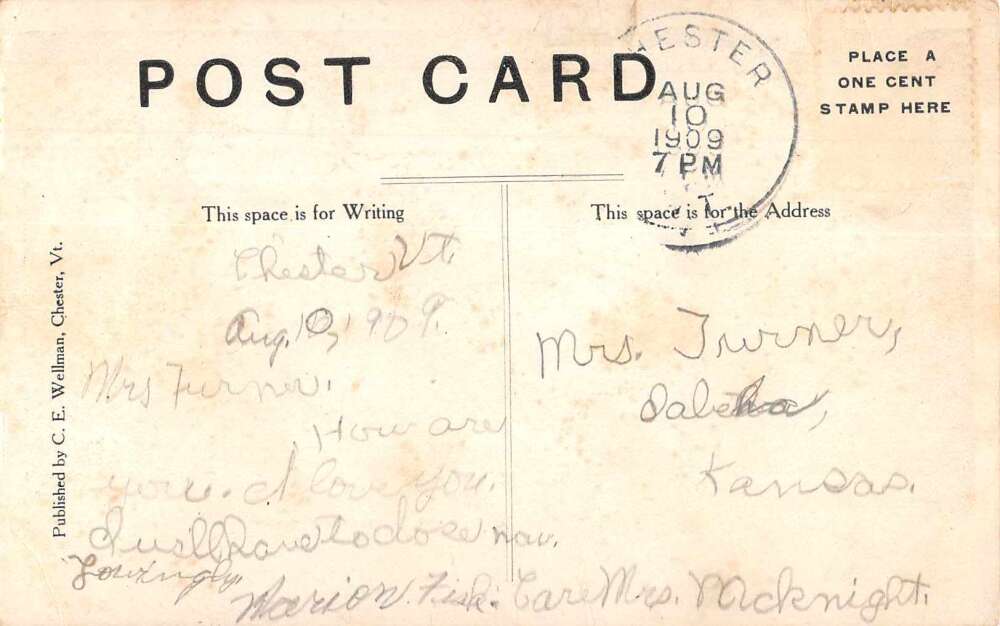 POST CARD
CHESTER
AUG
10
1909
7 PM
VT.
PLACE A
ONE CENT
STAMP HERE
This space is for Writing
This space is for the Address
Published by C. E. Wellman, Chester, Vt.
Chester Vt.
Aug. 10, 1909.
Mrs Turner.
How are
you. I love you.
I will have to close now.
Lovingly,
Marion Fisk.
Mrs. Turner,
Kansas.
Care Mrs. McKnight.